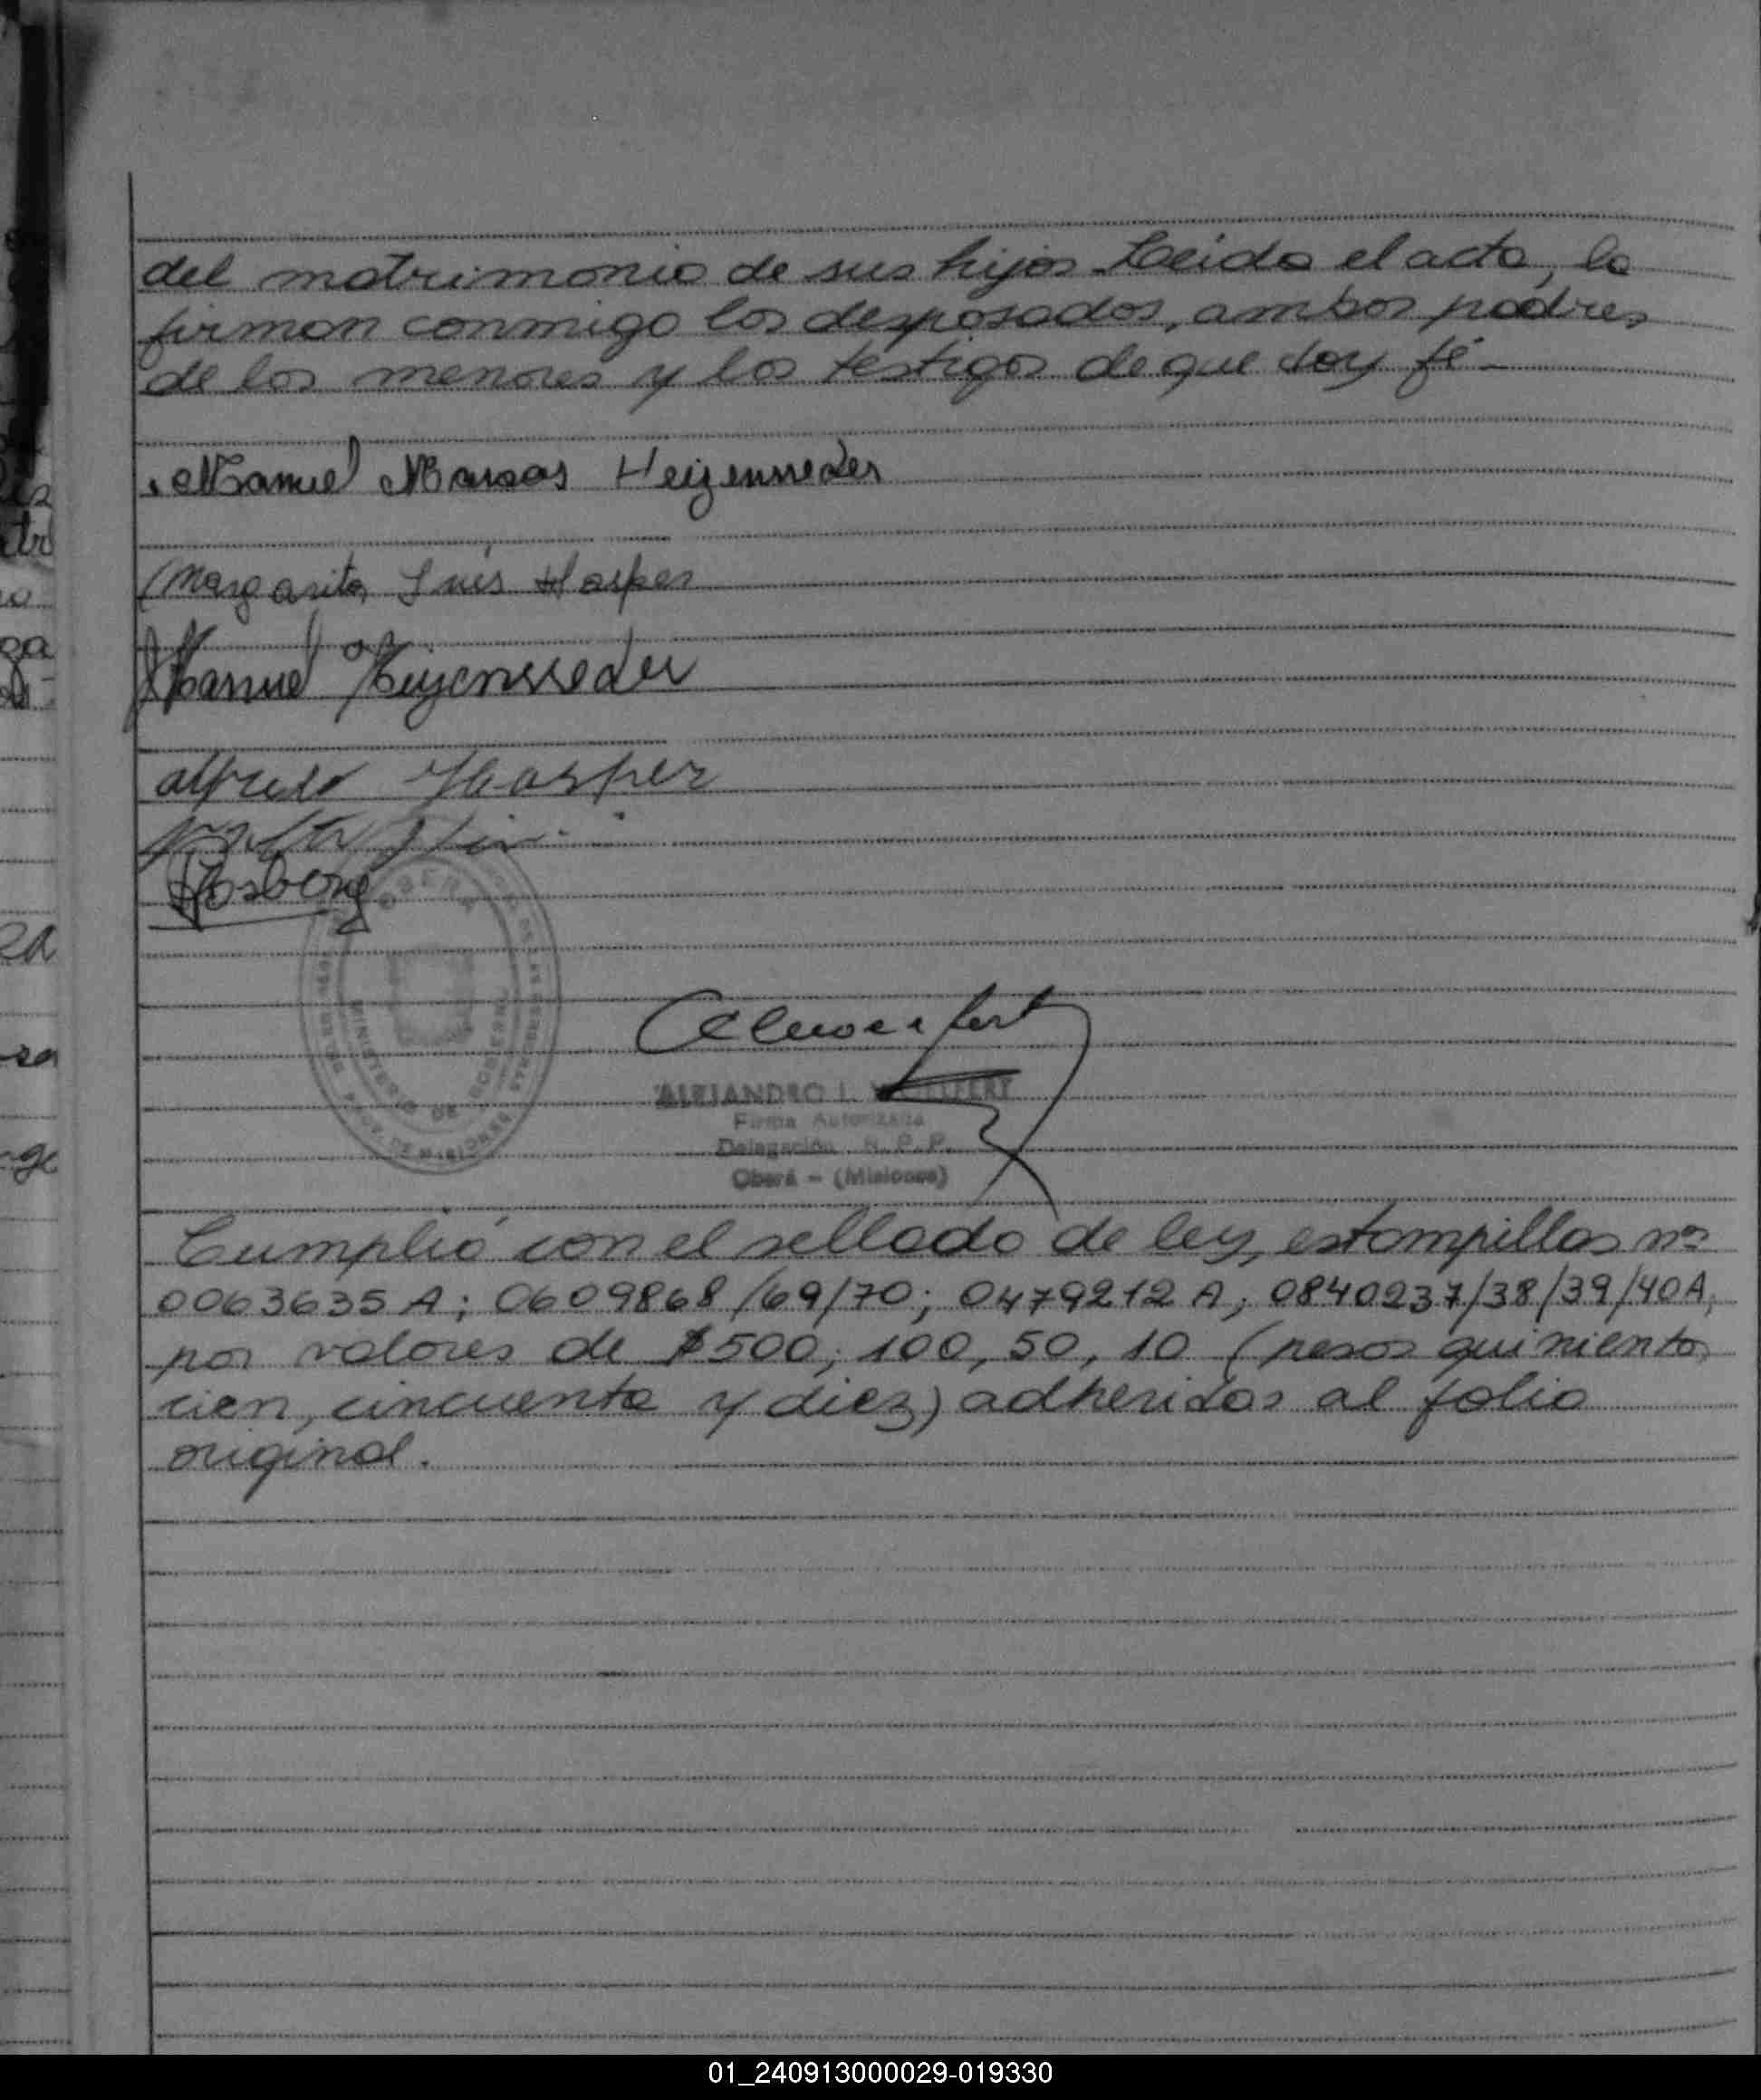 del matrimonio de sus hijos. Leida el acta, la
firman conmigo los desposados, ambos padres
de los menores y los testigos de que doy fé -
Manuel Marcos Heizenreder
Margarita Inés Hasper
Manuel
Alfredo Hasper
ALEJANDRO I.
Firma Autorizada
Delegación R. P. P.
Oberá - (Misiones)
MINISTERIO DE GOBIERNO
PROV. DE MISIONES
Cumplió con el sellado de ley, estampillas nos
0063635 A; 0609868/69/70; 0479212 A; 0840237/38/39/40A,
por valores de $500, 100, 50, 10 (pesos quinientos
cien, cincuenta y diez) adheridas al folio
original.
01_240913000029-019330